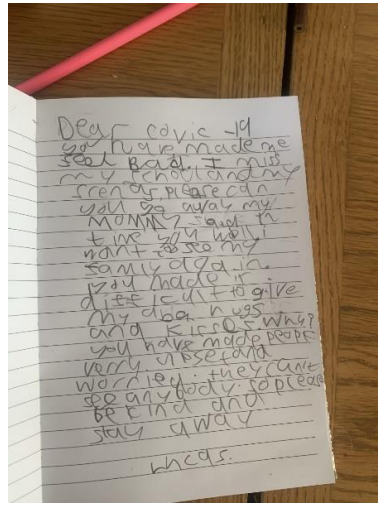 Dear covic -19
you have made me
seel bad. I miss
my school and my
frends, please can
you go away my
MOMMY said in
time you will i
want to see my
samly again.
you made it
difficult to give
my dba hugs
and kisses. Why?
you have made peopl
verry upset and
worried. they can't
see any body. so please
be kind and
stay away